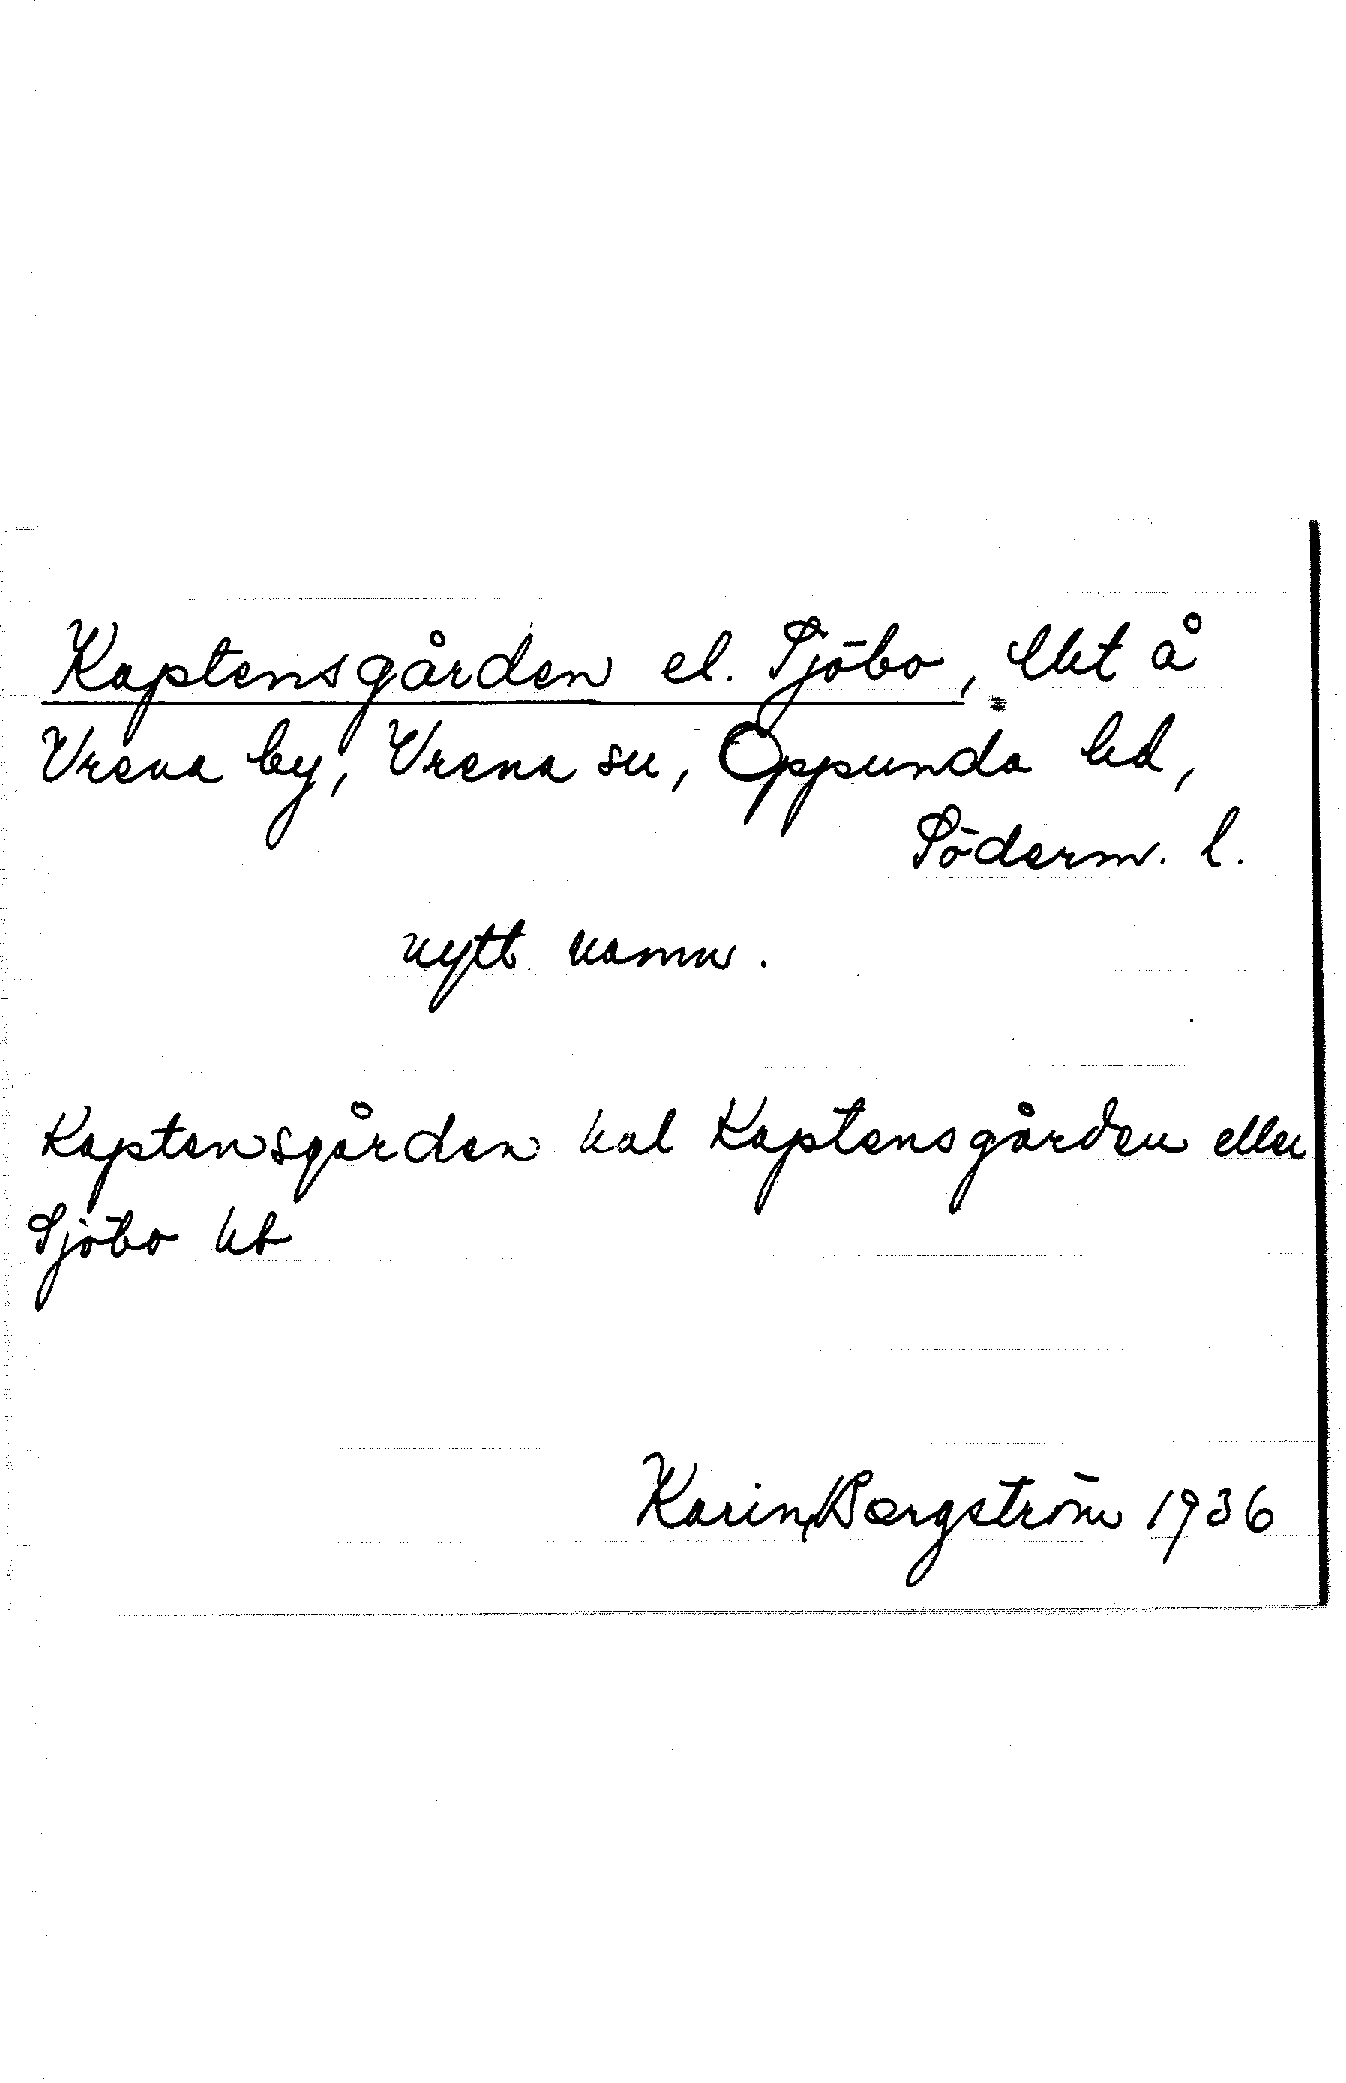 Kaptensgården el. Sjöbo, lht å
Vrena by, Vrena sn, Oppunda hd,
Söderm. l.
nytt namn.
Kaptensgården hal Kaptensgården eller
Sjöbo kb
Karin Bergström 1936